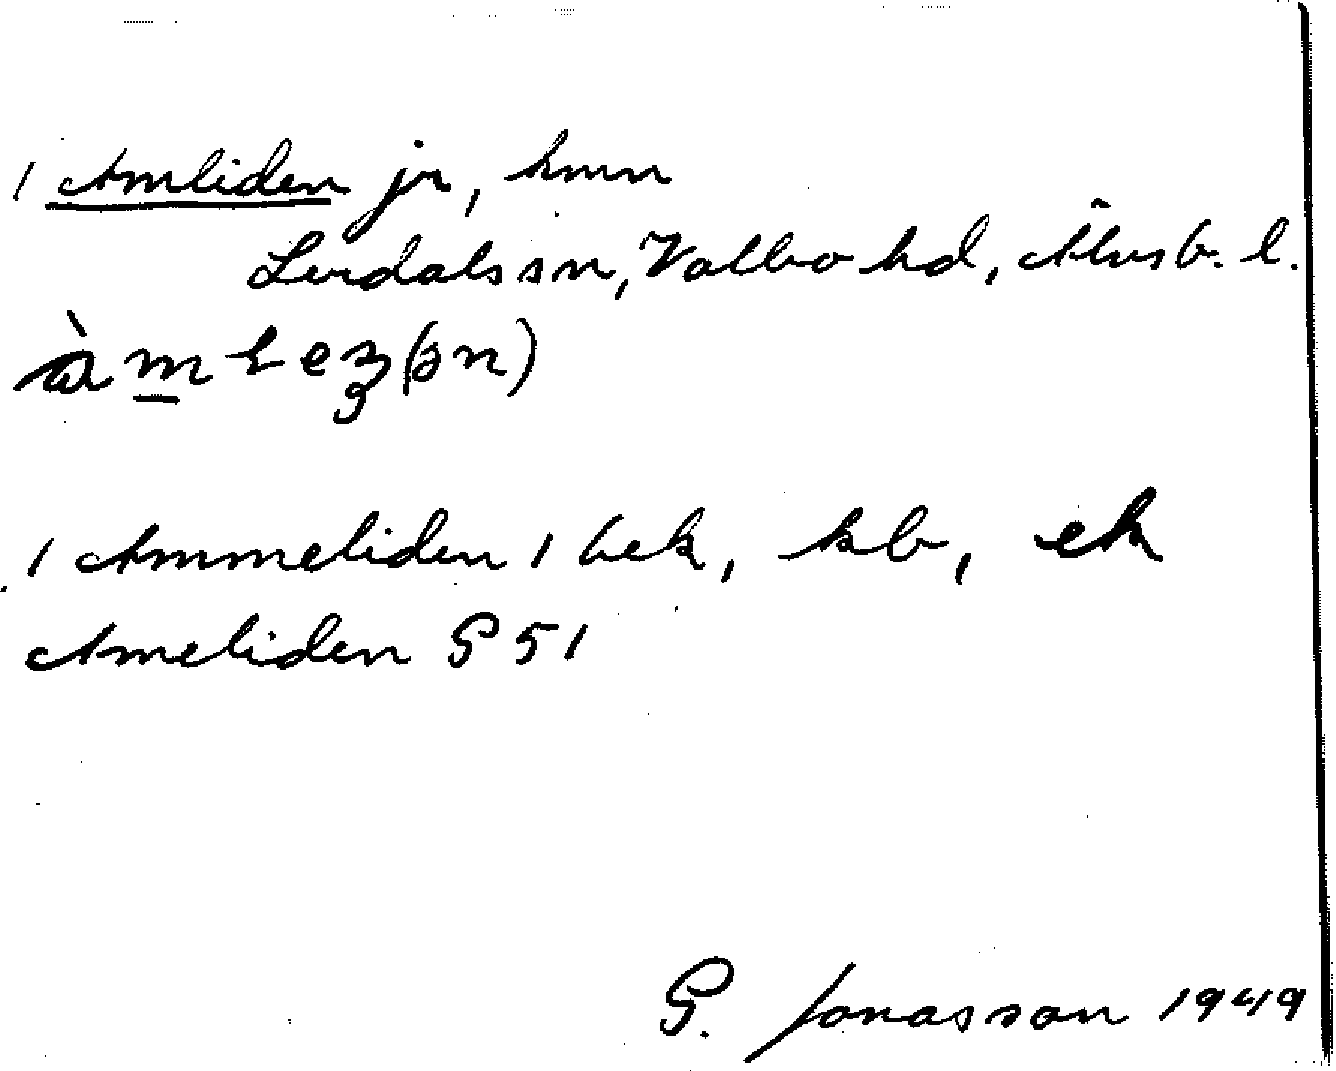 / Amliden jr, hmn
Lerdals sn, Valbo hd, Älvsb. l.
/ Ammeliden / bek, kb, ek
Ameliden G 51
G. Jonasson 1949